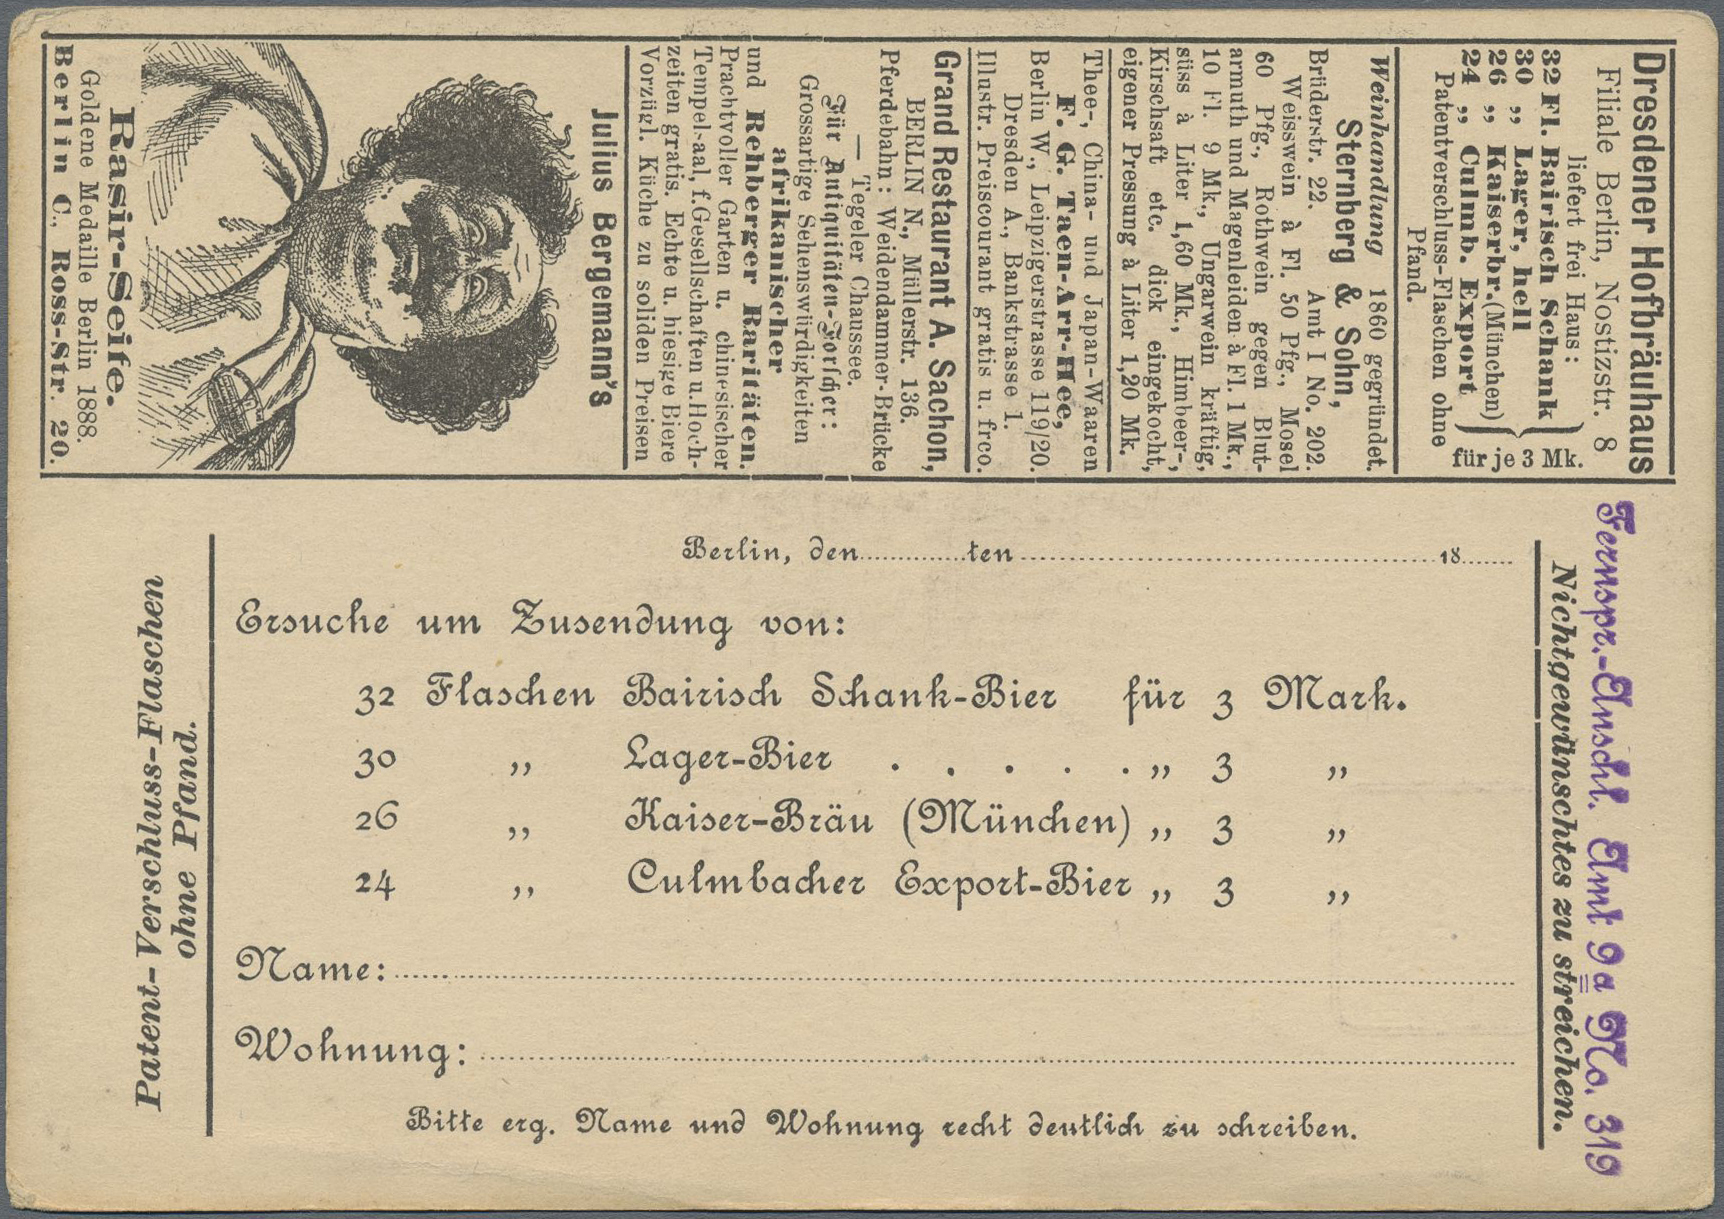 Dresdener Hofbräuhaus
Filiale Berlin, Nostizstr. 8
liefert frei Haus:
32 Fl. Bairisch Schank
30 „ Lager, hell
26 „ Kaiserbr. (München)
24 „ Culmb. Export
für je 3 Mk.
Patentverschluss-Flaschen ohne
Pfand.
Weinhandlung 1860 gegründet.
Sternberg & Sohn,
Brüderstr. 22. Amt I No. 202.
Weisswein à Fl. 50 Pfg., Mosel
60 Pfg., Rothwein gegen Blut-
armuth und Magenleiden à Fl. 1 Mk.,
10 Fl. 9 Mk., Ungarwein kräftig,
süss à Liter 1,60 Mk., Himbeer-,
Kirschsaft etc. dick eingekocht,
eigener Pressung à Liter 1,20 Mk.
Thee-, China- und Japan-Waaren
F. G. Taen-Arr-Hee,
Berlin W., Leipzigerstrasse 119/20.
Dresden A., Bankstrasse 1.
Illustr. Preiscourant gratis u. frco.
Grand Restaurant A. Sachon,
BERLIN N., Müllerstr. 136.
Pferdebahn: Weidendammer-Brücke
— Tegeler Chaussee.
Für Antiquitäten-Forscher:
Grossartige Sehenswürdigkeiten
afrikanischer
und Rehberger Raritäten.
Prachtvoller Garten u. chinesischer
Tempelsaal, f. Gesellschaften u. Hoch-
zeiten gratis. Echte u. hiesige Biere
Vorzügl. Küche zu soliden Preisen
Julius Bergemann's
Rasir-Seife.
Goldene Medaille Berlin 1888.
Berlin C., Ross-Str. 20.
Fernspr.-Anschl. Amt 9a No. 319
Nichtgewünschtes zu streichen.
Berlin, den ten 18
Ersuche um Zusendung von:
32 Flaschen Bairisch Schank-Bier für 3 Mark.
30 „ Lager-Bier . . . . . „ 3 „
26 „ Kaiser-Bräu (München) „ 3 „
24 „ Culmbacher Export-Bier „ 3 „
Name:
Wohnung:
Bitte erg. Name und Wohnung recht deutlich zu schreiben.
Patent-Verschluss-Flaschen
ohne Pfand.